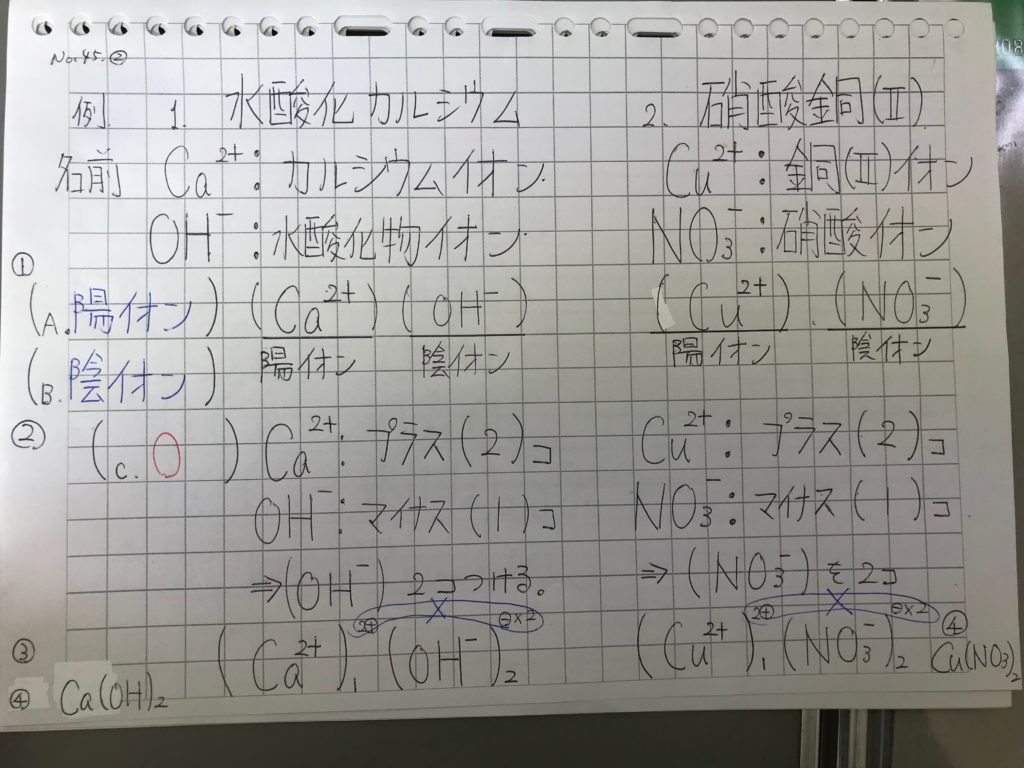 No.45.②
例 1. 水酸化カルシウム 2. 硝酸銅(Ⅱ)
名前 Ca²⁺: カルシウムイオン Cu²⁺: 銅(Ⅱ)イオン
OH⁻: 水酸化物イオン NO₃⁻: 硝酸イオン
①
(A. 陽イオン) (Ca²⁺) (OH⁻) (Cu²⁺) (NO₃⁻)
(B. 陰イオン) 陽イオン 陰イオン 陽イオン 陰イオン
② (C. 0) Ca²⁺: プラス(2)コ Cu²⁺: プラス(2)コ
OH⁻: マイナス(1)コ NO₃⁻: マイナス(1)コ
⇒(OH⁻) 2コつける。 ⇒ (NO₃⁻)を2コ
2⊕ × ⊖×2 2⊕ × ⊖×2
③ (Ca²⁺)₁ (OH⁻)₂ (Cu²⁺)₁ (NO₃⁻)₂ ④ Cu(NO₃)₂
④ Ca(OH)₂